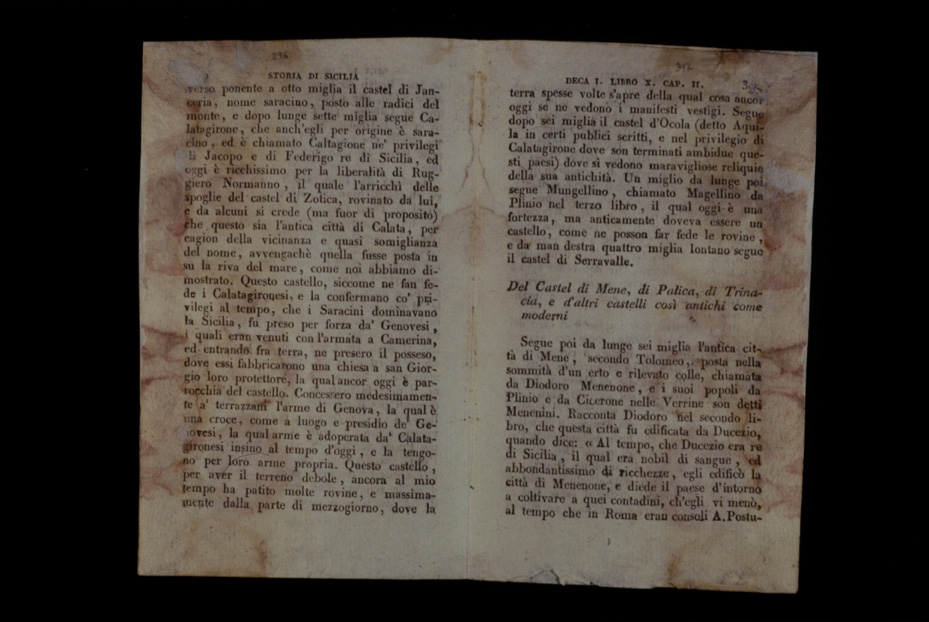 396
STORIA DI SICILIA
verso ponente a otto miglia il castel di Jan-
ceria, nome saracino, posto alle radici del
monte, e dopo lunge sette miglia segue Ca-
latagirone, che anch'egli per origine è sara-
cino, ed è chiamato Caltagione ne' privilegi
di Jacopo e di Federigo re di Sicilia, ed
oggi è ricchissimo per la liberalità di Rug-
giero Normanno, il quale l'arricchì delle
spoglie del castel di Zotica, rovinato da lui,
e da alcuni si crede (ma fuor di proposito)
che questo sia l'antica città di Calata, per
cagion della vicinanza e quasi somiglianza
del nome, avvengachè quella fusse posta in
su la riva del mare, come noi abbiamo di-
mostrato. Questo castello, siccome ne fan fe-
de i Calatagironesi, e la confermano co' pri-
vilegi al tempo, che i Saracini dominavano
la Sicilia, fu preso per forza da' Genovesi,
i quali eran venuti con l'armata a Camerina,
ed entrando fra terra, ne presero il posseso,
dove essi fabbricarono una chiesa a san Gior-
gio loro protettore, la qual ancor oggi è par-
rocchia del castello. Concessero medesimamen-
te a' terrazzani l'arme di Genova, la qual è
una croce, come a luogo e presidio de' Ge-
novesi, la qual arme è adoperata da' Calata-
gironesi insino al tempo d'oggi, e la tengo-
no per loro arme propria. Questo castello,
per aver il terreno debole, ancora al mio
tempo ha patito molte rovine, e massima-
mente dalla parte di mezzogiorno, dove la
DECA I. LIBRO X. CAP. II.
terra spesse volte s'apre della qual cosa ancor
oggi se ne vedono i manifesti vestigi. Segue
dopo sei miglia il castel d'Ocola (detto Aqui-
la in certi publici scritti, e nel privilegio di
Calatagirone dove son terminati ambidue que-
sti paesi) dove si vedono maravigliose reliquie
della sua antichità. Un miglio da lunge poi
segue Mungellino, chiamato Magellino da
Plinio nel terzo libro, il qual oggi è una
fortezza, ma anticamente doveva essere un
castello, come ne posson far fede le rovine,
e da man destra quattro miglia lontano segue
il castel di Serravalle.
Del Castel di Mene, di Palica, di Trina-
cia, e d'altri castelli così antichi come
moderni
Segue poi da lunge sei miglia l'antica cit-
tà di Mene, secondo Tolomeo, posta nella
sommità d'un erto e rilevato colle, chiamata
da Diodoro Menenone, e i suoi popoli da
Plinio e da Cicerone nelle Verrine son detti
Menenini. Racconta Diodoro nel secondo li-
bro, che questa città fu edificata da Ducezio,
quando dice: « Al tempo, che Ducezio era re
di Sicilia, il qual era nobil di sangue, ed
abbondantissimo di ricchezze, egli edificò la
città di Menenone, e diede il paese d'intorno
a coltivare a quei contadini, ch'egli vi menò,
al tempo che in Roma eran consoli A. Postu-